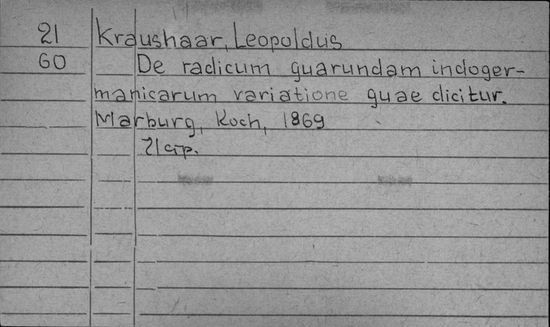 21 Kraushaar, Leopoldus
60 De radicum quarundam indoger-
manicarum variatione quae dicitur.
Marburg, Koch, 1869
21 стр.